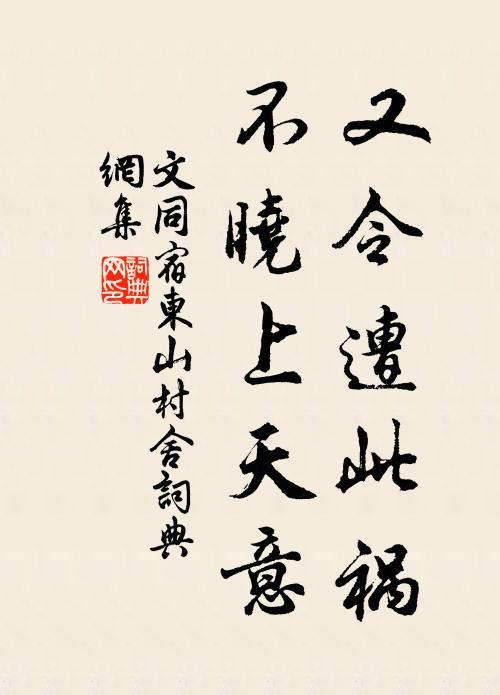 又令遭此禍
不曉上天意
文同宿東山村舍詞典
網集
詞典網印